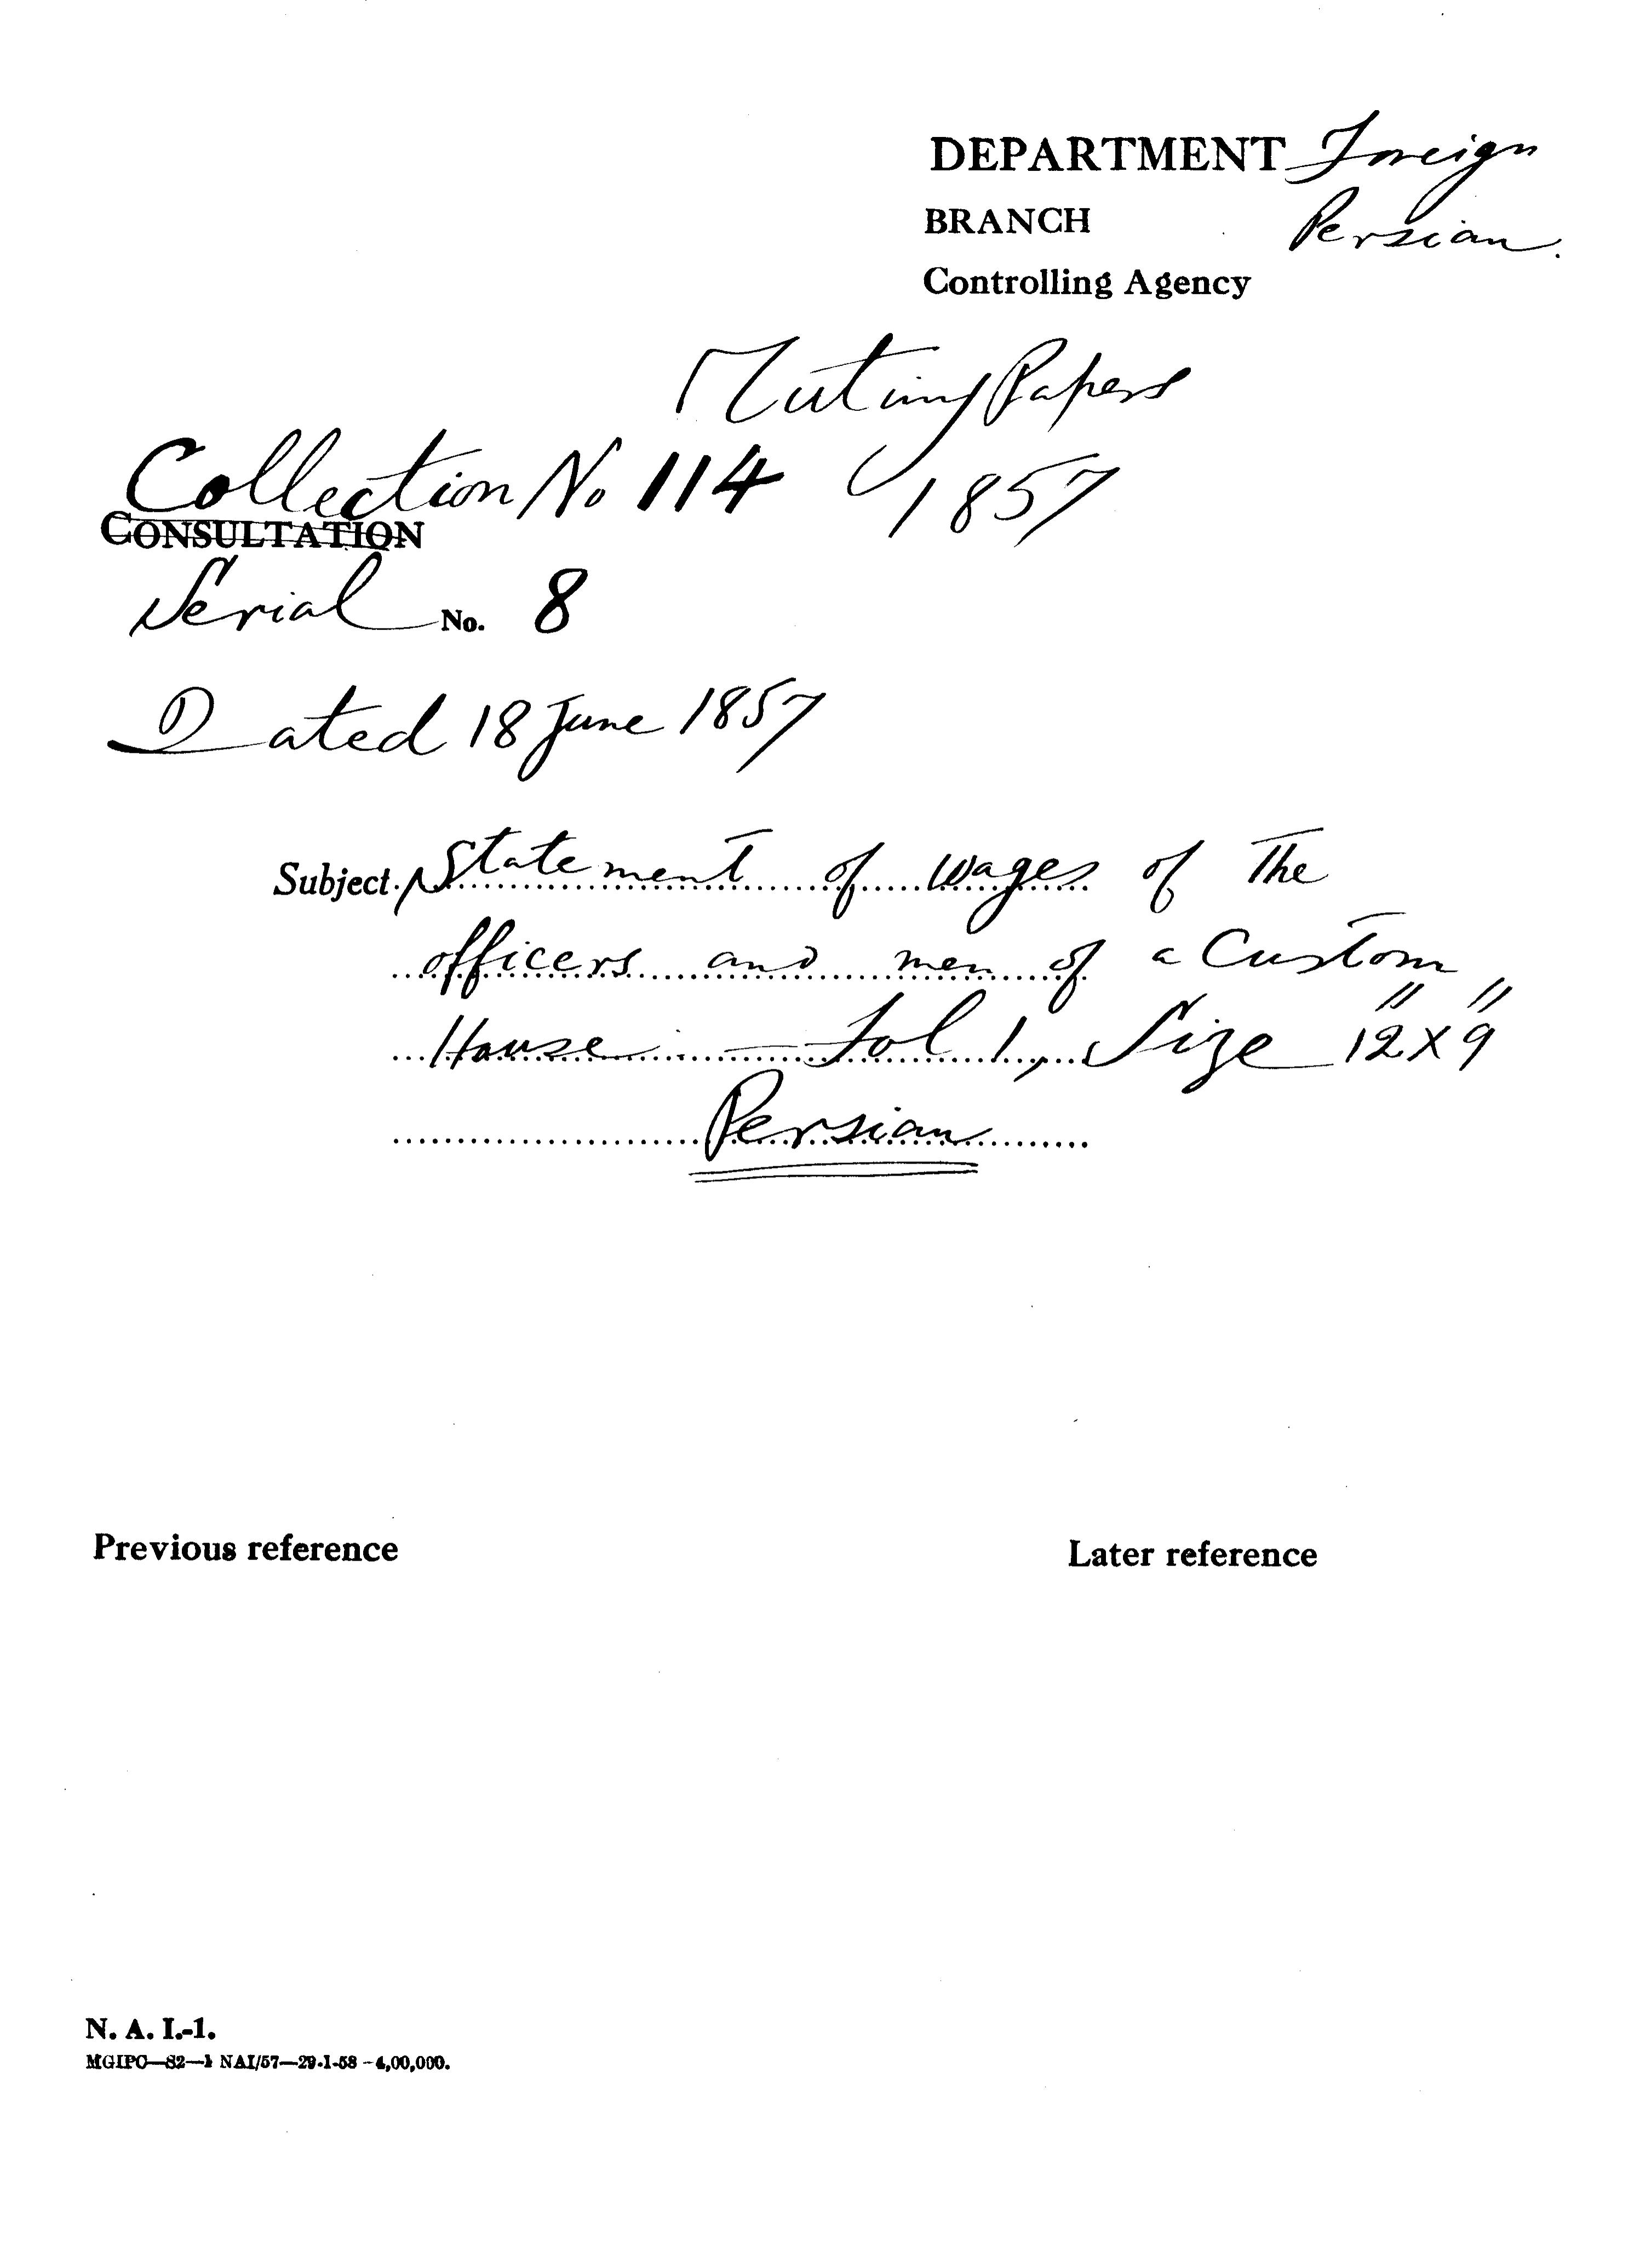 DEPARTMENT Foreign
BRANCH Persian.
Controlling Agency
Mutiny Papers
1857
Collection No 114
CONSULTATION
Serial No. 8
Dated 18 June 1857
Subject. Statement of wages of the
officers and men of a Custom
House — Fol 1, Size 12" x 9"
Persian
Previous reference
Later reference
N. A. I.-1.
MGIPC—S2—1 NAI/57—29-1-58 –4,00,000.